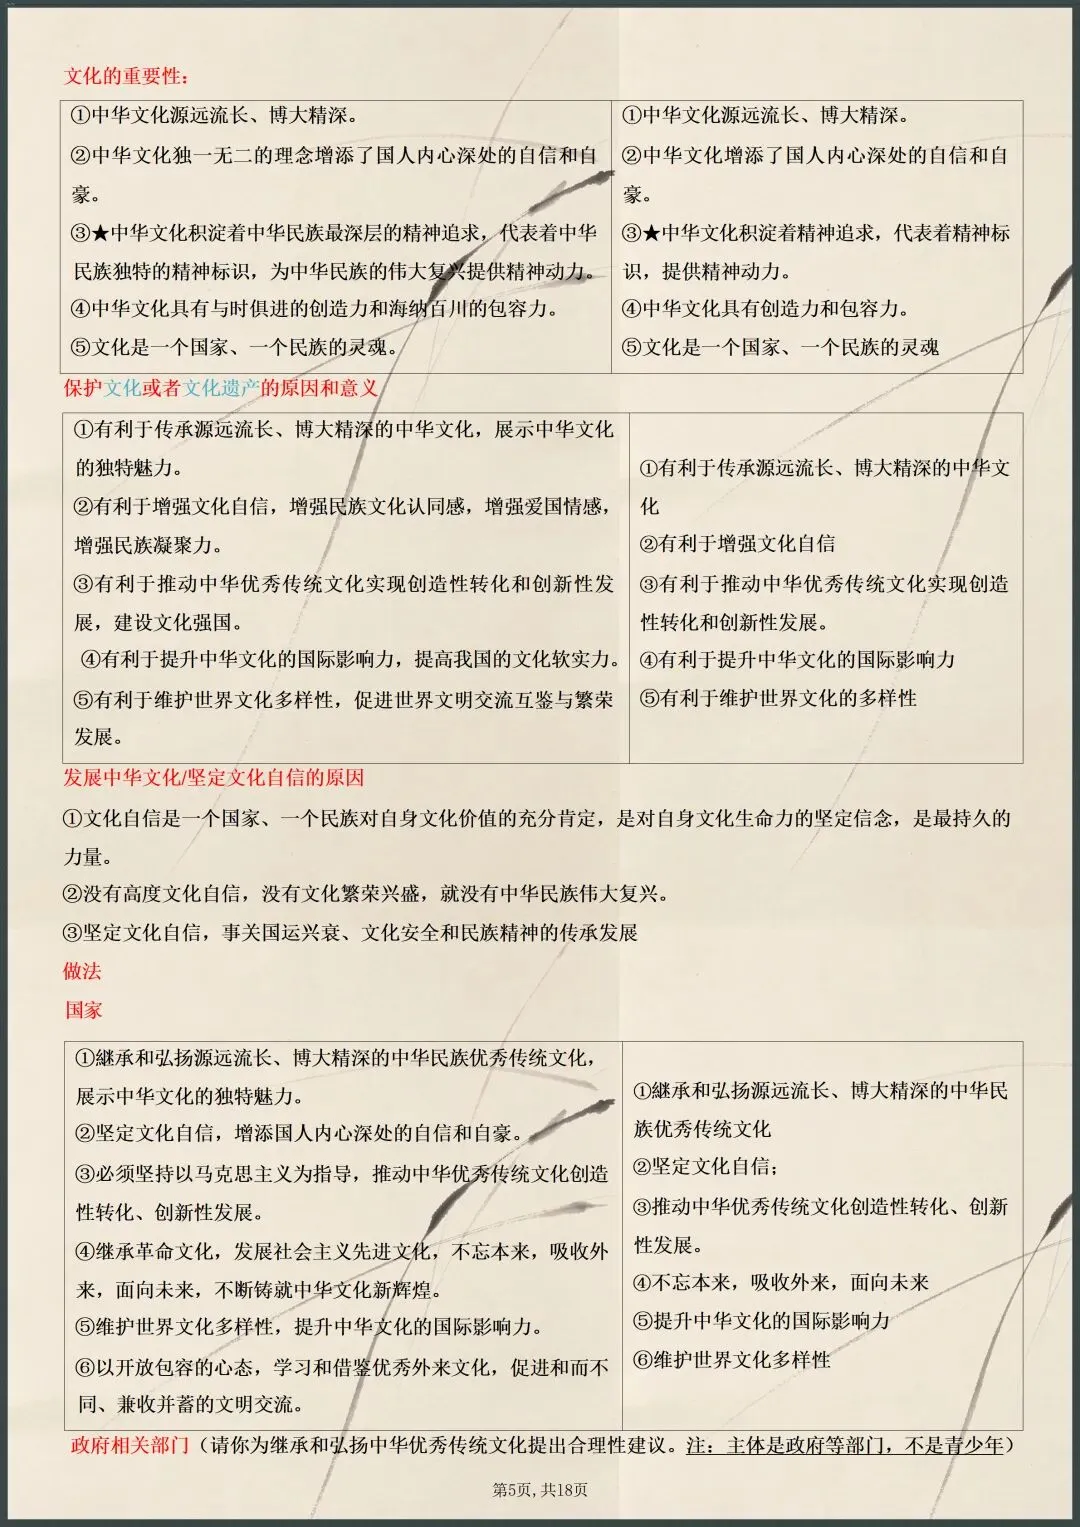 文化的重要性：
①中华文化源远流长、博大精深。
②中华文化独一无二的理念增添了国人内心深处的自信和自
豪。
③★中华文化积淀着中华民族最深层的精神追求，代表着中华
民族独特的精神标识，为中华民族的伟大复兴提供精神动力。
④中华文化具有与时俱进的创造力和海纳百川的包容力。
⑤文化是一个国家、一个民族的灵魂。
①中华文化源远流长、博大精深。
②中华文化增添了国人内心深处的自信和自
豪。
③★中华文化积淀着精神追求，代表着精神标
识，提供精神动力。
④中华文化具有创造力和包容力。
⑤文化是一个国家、一个民族的灵魂
保护文化或者文化遗产的原因和意义
①有利于传承源远流长、博大精深的中华文化，展示中华文化
的独特魅力。
②有利于增强文化自信，增强民族文化认同感，增强爱国情感，
增强民族凝聚力。
③有利于推动中华优秀传统文化实现创造性转化和创新性发
展，建设文化强国。
④有利于提升中华文化的国际影响力，提高我国的文化软实力。
⑤有利于维护世界文化多样性，促进世界文明交流互鉴与繁荣
发展。
①有利于传承源远流长、博大精深的中华文
化
②有利于增强文化自信
③有利于推动中华优秀传统文化实现创造
性转化和创新性发展。
④有利于提升中华文化的国际影响力
⑤有利于维护世界文化的多样性
发展中华文化/坚定文化自信的原因
①文化自信是一个国家、一个民族对自身文化价值的充分肯定，是对自身文化生命力的坚定信念，是最持久的
力量。
②没有高度文化自信，没有文化繁荣兴盛，就没有中华民族伟大复兴。
③坚定文化自信，事关国运兴衰、文化安全和民族精神的传承发展
做法
国家
①継承和弘扬源远流长、博大精深的中华民族优秀传统文化，
展示中华文化的独特魅力。
②坚定文化自信，增添国人内心深处的自信和自豪。
③必须坚持以马克思主义为指导，推动中华优秀传统文化创造
性转化、创新性发展。
④继承革命文化，发展社会主义先进文化，不忘本来，吸收外
来，面向未来，不断铸就中华文化新辉煌。
⑤维护世界文化多样性，提升中华文化的国际影响力。
⑥以开放包容的心态，学习和借鉴优秀外来文化，促进和而不
同、兼收并蓄的文明交流。
①継承和弘扬源远流长、博大精深的中华民
族优秀传统文化
②坚定文化自信；
③推动中华优秀传统文化创造性转化、创新
性发展。
④不忘本来，吸收外来，面向未来
⑤提升中华文化的国际影响力
⑥维护世界文化多样性
政府相关部门（请你为继承和弘扬中华优秀传统文化提出合理性建议。注：主体是政府等部门，不是青少年）
第5页,共18页